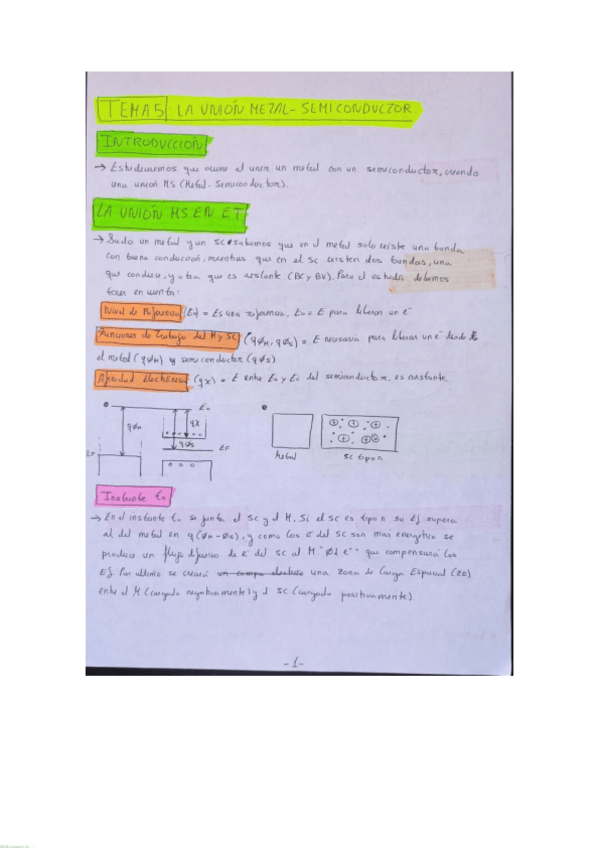 TEMA 5 LA UNIÓN METAL-SEMICONDUCTOR
INTRODUCCIÓN
→ Estudiaremos que ocurre al unir un metal con un semiconductor, cuando
una unión MS (Metal-Semiconductor).
LA UNIÓN MS EN ET
→ Dado un metal y un sc sabemos que en el metal solo existe una banda
con buena conducción, mientras que en el sc existen dos bandas, una
que conduce, y otra que es aislante. (BC y BV). Para el estudio debemos
tener en cuenta:
Nivel de Referencia (E0) = Es una referencia, E0 = E para liberar un e⁻
Funciones de Trabajo del M y SC (qØM, qØS) = E necesaria para liberar un e⁻ desde
el metal (qØM) y semiconductor (qØS)
Afinidad Electrónica (qx) = E entre E0 y Ec del semiconductor, es constante.
E0
qØM
qx
qØS
EF
EF
Metal
SC tipo n
Instante t0
→ En el instante t0 se junta el SC y el M. Si el SC es tipo n su Ef supera
al del metal en q(ØM-ØS), y como los e⁻ del SC son más energético se
produce un flujo difusivo de e⁻ del SC al M. que compensará los
Ef. Por último se creará un campo eléctrico una zona de Carga Espacial (ZCE)
entre el M (cargado negativamente) y el SC (cargado positivamente).
-1-